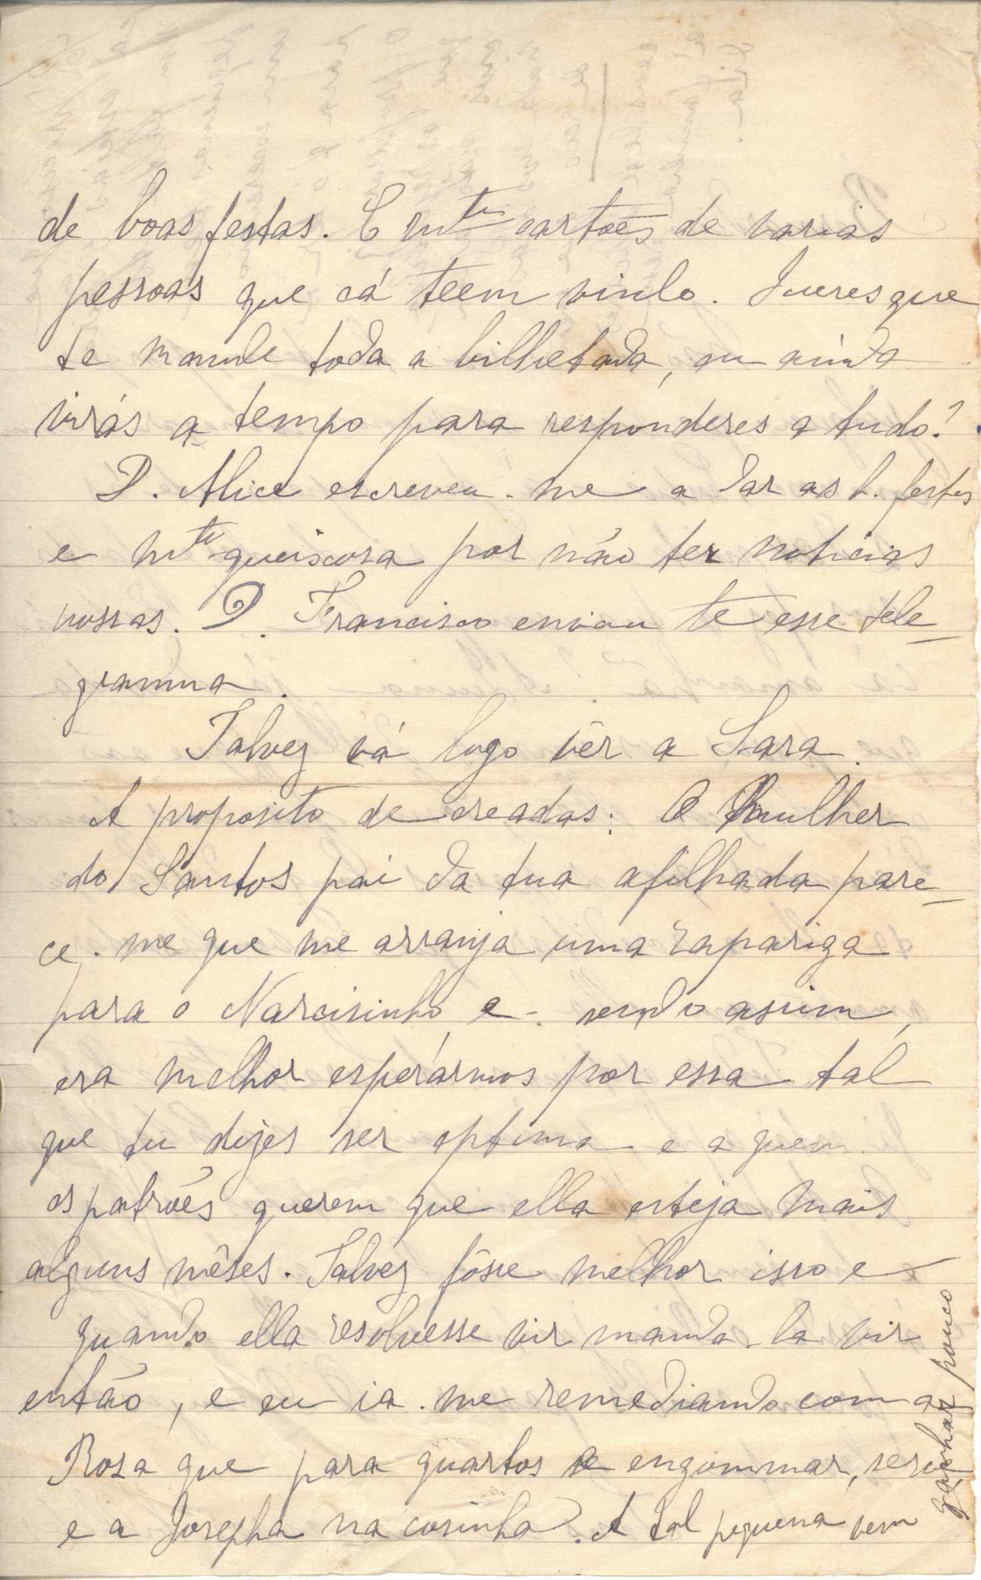 de boas festas. E mtos cartões de varias
pessoas que cá teem vindo. Queres que
te mande toda a bilhetada, ou ainda
virás a tempo para responderes a tudo?
D. Alice escreveu-me a dar as b. festas
e mto queixosa por não ter noticias
nossas. D. Francisco enviou te esse tele-
gramma.
Talvez vá logo vêr a Sara.
A proposito de creadas: A mulher
do Santos pai da tua afilhada pare-
ce-me que me arranja uma rapariga
para o Narcisinho e-sendo assim,
era melhor esperármos por essa tal
que tu dizes ser optima e a quem
os patrões querem que ella esteja mais
alguns mêses. Talvez fôsse melhor isso e
quando ella resolvesse vir manda-la vir
então, e eu ia-me remediando com a
Rosa que para quartos e engommar, serve
e a Josepha na cosinha. A tal pequena vem
ganhar pouco